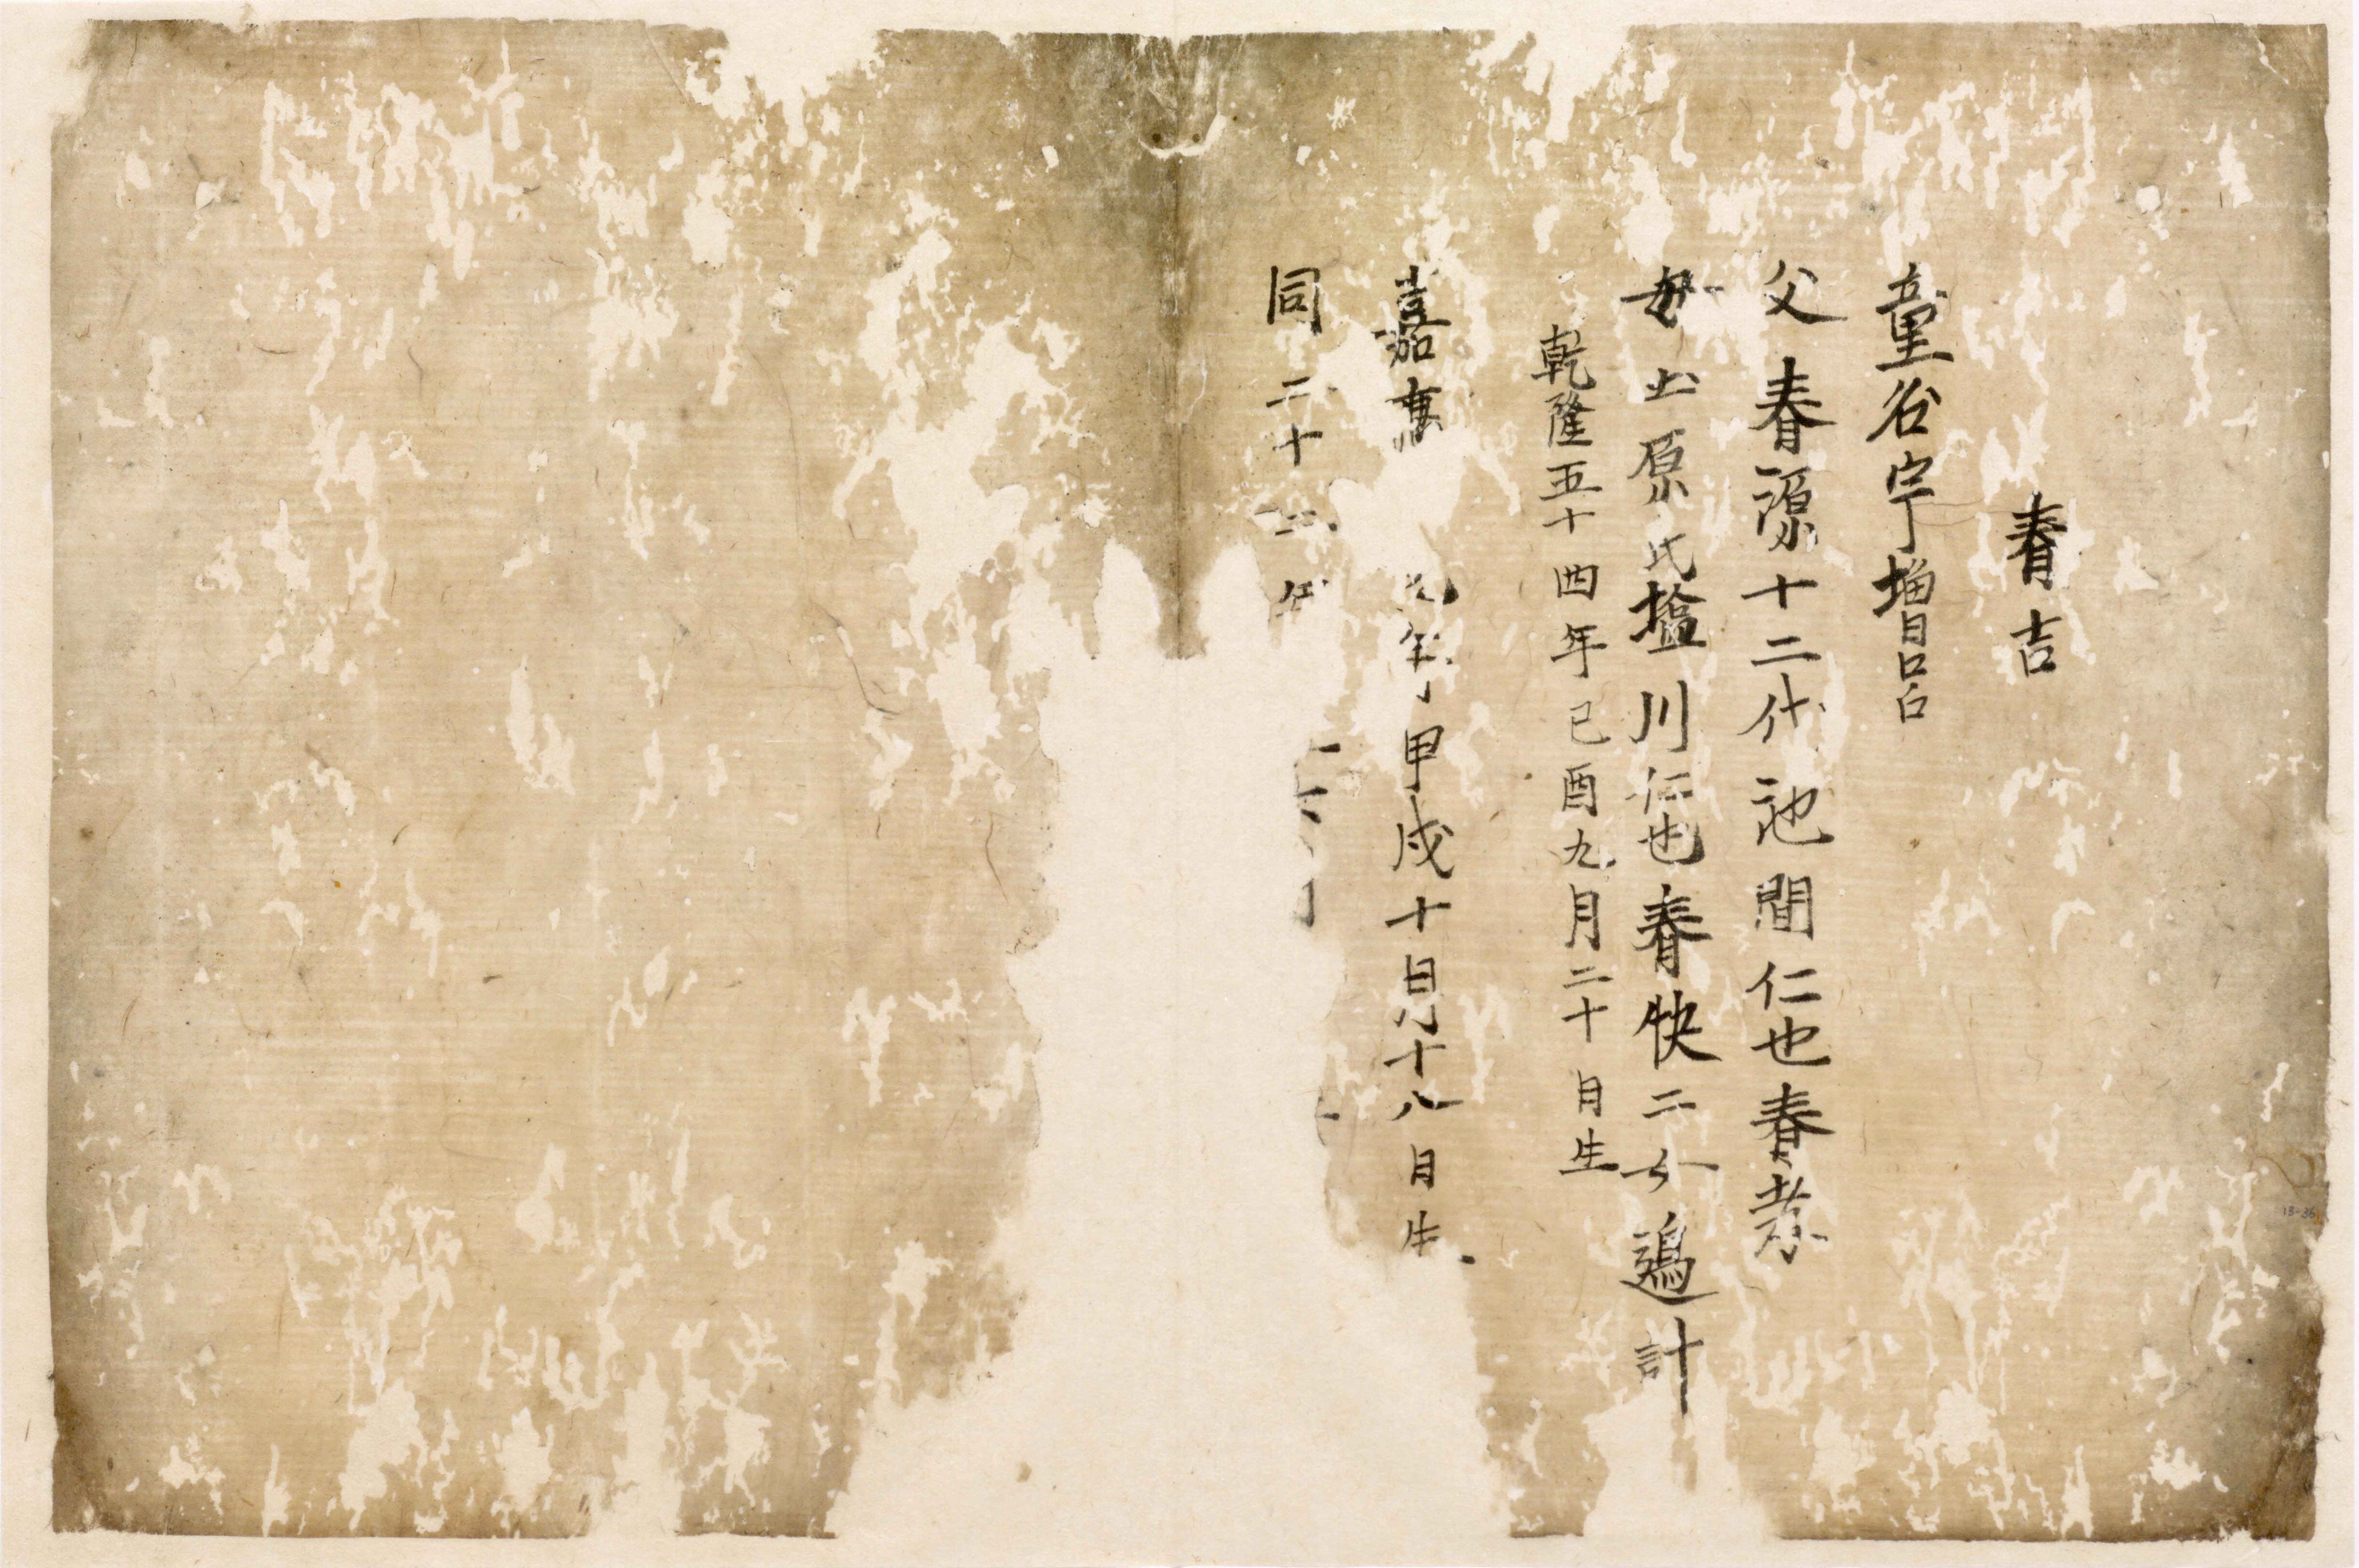 春吉
童名宇増呂
父春源十二代池間仁也春蒙
母土原氏塩川仁也春快二女過計
乾隆五十四年己酉九月二十日生
嘉 元年甲戌十 十八日生
同二十 年
13-36